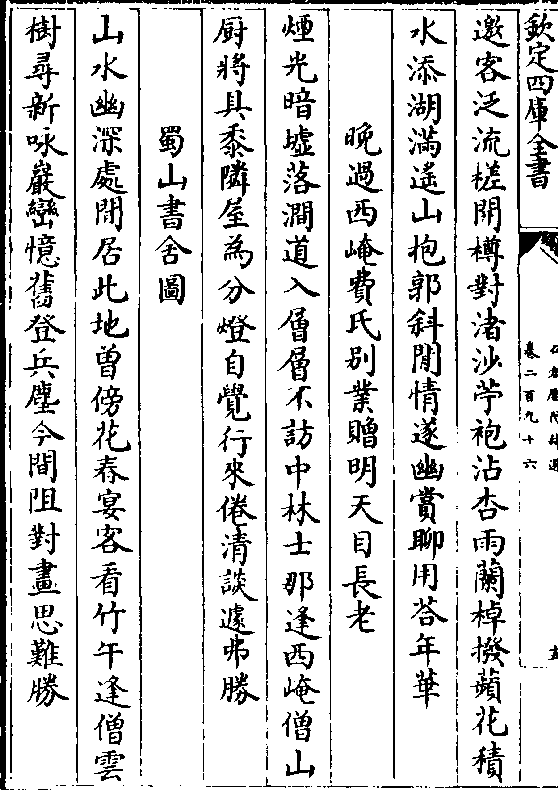 欽定四庫全書
卷二百九十六
邀客泛流槎開樽對渚沙苧袍沾杏雨蘭棹撥蘋花積
水添湖滿遙山抱郭斜閒情遂幽賞聊用荅年華
晚過西崦費氏别業贈明天目長老
煙光暗墟落澗道入層層不訪中林士那逢西崦僧山
厨將具黍隣屋為分燈自覺行來倦清談遽弗勝
蜀山書舍圖
山水幽深處閒居此地曾傍花春宴客看竹午逢僧雲
樹尋新咏巖巒憶舊登兵塵今間阻對畫思難勝